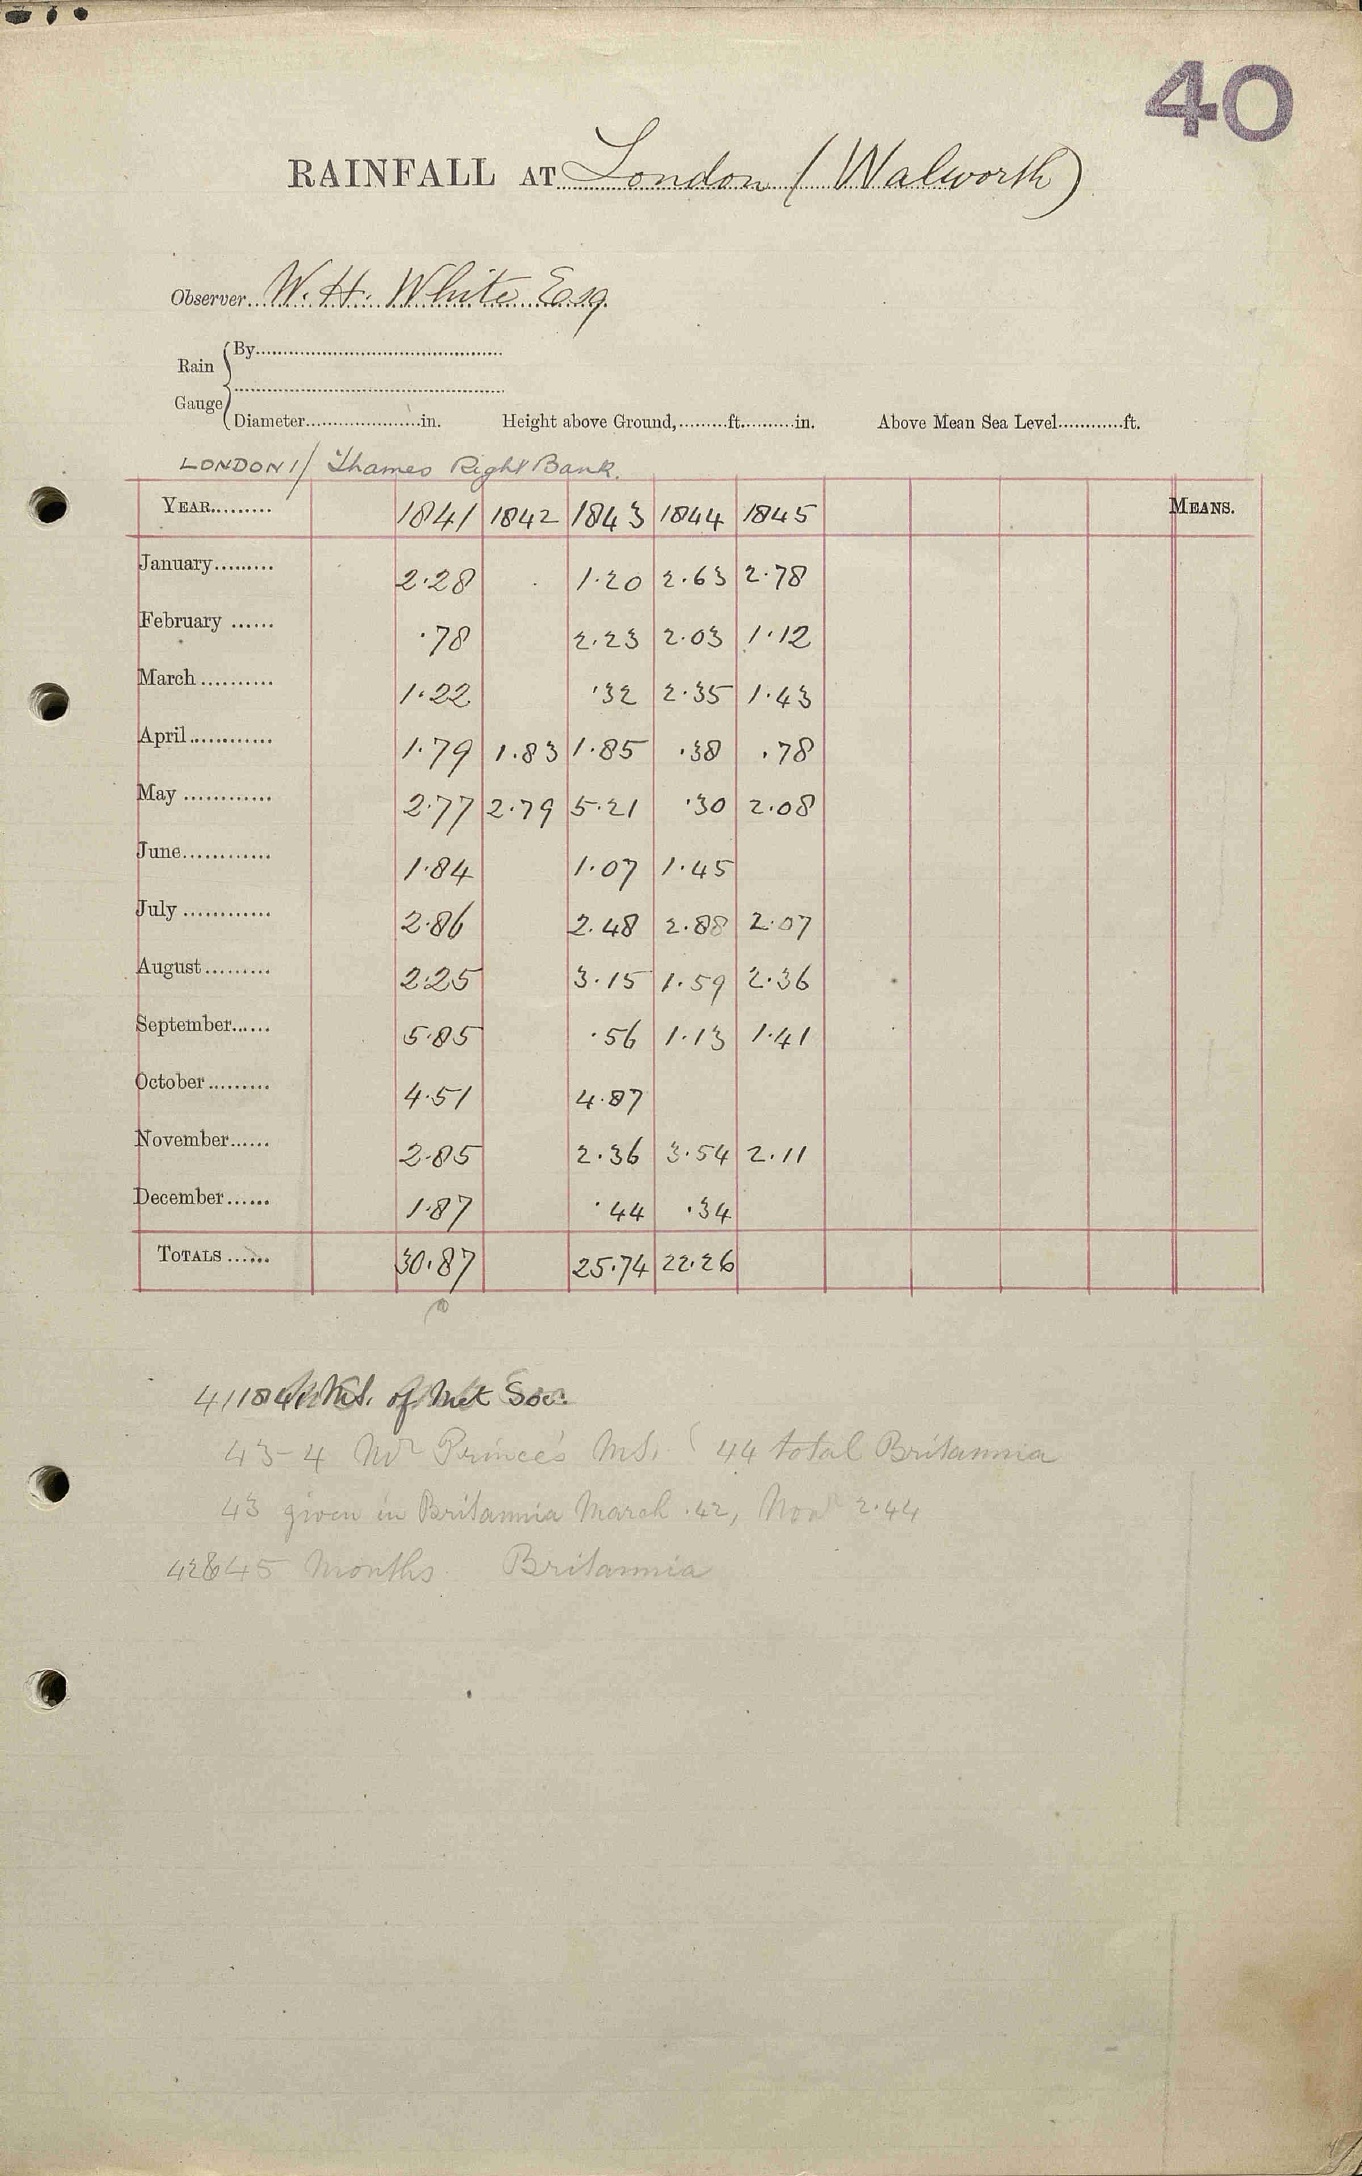 40
RAINFALL AT London (Walworth)
Observer W. H. White Esq
Rain Gauge
By
Diameter in. Height above Ground, ft. in. Above Mean Sea Level ft.
LONDON 1/ Thames Right Bank.
YEAR 1841 1842 1843 1844 1845 MEANS.
January 2.28 1.20 2.63 2.78
February .78 2.23 2.03 1.12
March 1.22 .32 2.35 1.43
April 1.79 1.83 1.85 .38 .78
May 2.77 2.79 5.21 .30 2.08
June 1.84 1.07 1.45
July 2.86 2.48 2.88 2.07
August 2.25 3.15 1.59 2.36
September 5.85 .56 1.13 1.41
October 4.51 4.87
November 2.85 2.36 3.54 2.11
December 1.87 .44 .34
TOTALS 30.87 25.74 22.26
MS. of Met Soc:
43-4 Mr Prince's MS. 44 total Britannia
43 given in Britannia March .42, Nov 2.44
42&45 Months Britannia